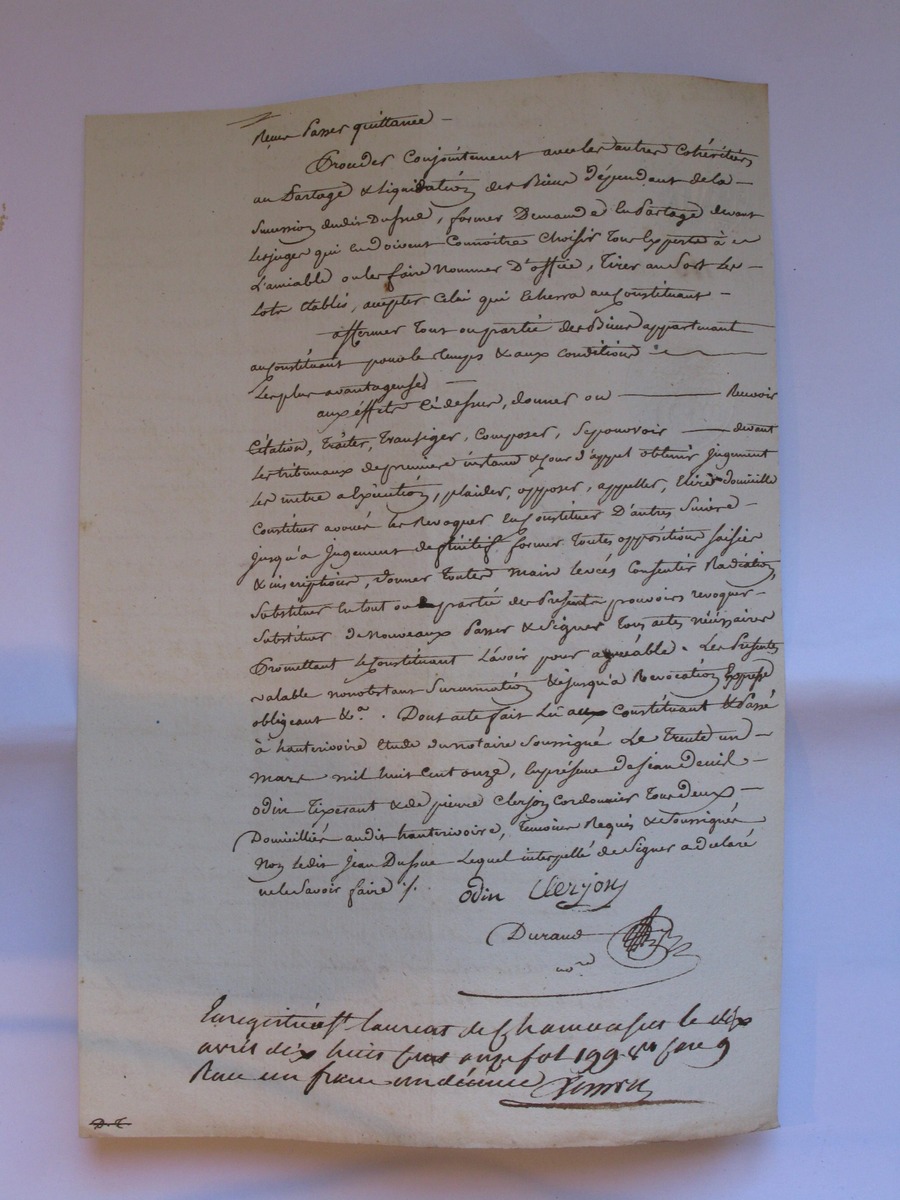 Reçu Passer quittance —
Proceder Conjointement avec les autres Cohéritiers
au Partage & Liquidation des Biens dépendant de la —
Succession dudit Dussue, former Demande en Partage devant
Les juges qui en doivent Connoitre Choisir Tous Experts à
L'amiable ou les faire Nommer D'office, Tirer au Sort Les —
Lots Etablis, accepter Celui qui Echerra au Constituant —
affermer Tout ou partie des Biens appartenant
au Constituant pour le temps & aux conditions
Les plus avantageuses —
aux éffets Ci dessus, donner ou — Recevoir
Citation, Traiter, Transiger, Composer, Se pourvoir — devant
Les tribunaux de premiere instance & Cour d'appel obtenir jugement
Les metre a Exécution, plaider, opposer, appeller, Elire domicille
Constituer avoués Les Revoquer En Constituer D'autres Suivre —
jusqu'a jugement definitif former Toutes oppositions Saisies
& inscriptions, donner Toutes Main levées Consentir Radiation,
Substituer En tout ou partie des Presents pouvoirs revoquer —
Substituer de Nouveaux Passer & Signer Tous actes nécéssaires
Promettant Le Constituant L'avoir pour agréable. Les Presentes
valable nonobstant Surannation & jusqu'a Revocation Expresse
obligeant &a. Dont acte fait Lu au Constituant & Passé
à hauterivoire Etude du notaire Soussigné Le Trente un —
mars mil huit Cent onze, En présence de jean
odin Tixerant & de pierre Clerjon Cordonnier Tous deux —
Domiciliés audit hauterivoire, Temoins Requis & Soussignés
Non Ledit Jean Dussue Lequel interpellé de Signer a déclaré
ne le Savoir faire ./.
odin Clerjon
Durand
nore
Enregistré a St. laurent de Chamousset le dix
avril dix huit Cent onze fol 199 Vo Case 9
Recu un franc un décime
D. T.